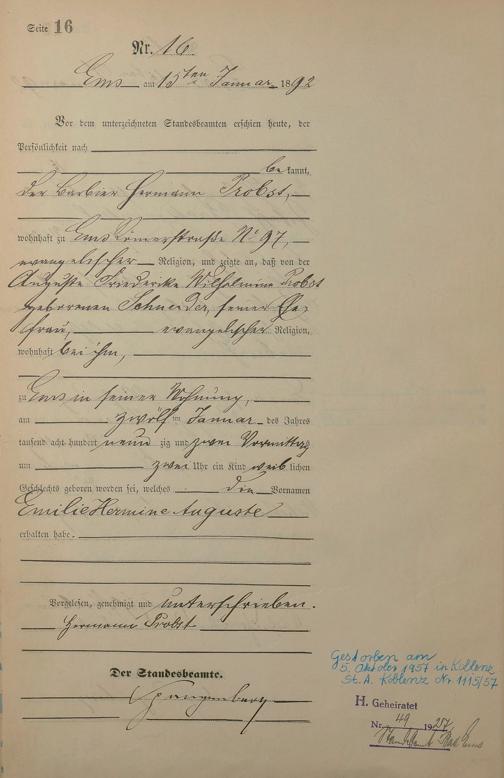 Seite 16
Nr. 16.
Ems am 15ten Januar 1892
Vor dem unterzeichneten Standesbeamten erschien heute, der
Persönlichkeit nach
bekannt,
der Barbier Hermann Probst,
wohnhaft zu Ems Römerstraße No 97,
evangelischer Religion, und zeigte an, daß von der
Auguste Friederike Wilhelmine Probst
geborenen Schneider, seiner Ehe-
frau, evangelischer Religion,
wohnhaft bei ihm,
zu Ems in seiner Wohnung,
am zwölften Januar des Jahres
tausend acht hundert neunzig und zwei Vormittags
um zwei Uhr ein Kind weiblichen
Geschlechts geboren worden sei, welches die Vornamen
Emilie Hermine Auguste
erhalten habe.
Vorgelesen, genehmigt und unterschrieben.
Hermann Probst
Der Standesbeamte.
Spangenberg
Gestorben am
5. Oktober 1957 in Koblenz
St. A. Koblenz Nr. 1115/57
H. Geheiratet
Nr. 49 1927
Standesamt Bad Ems